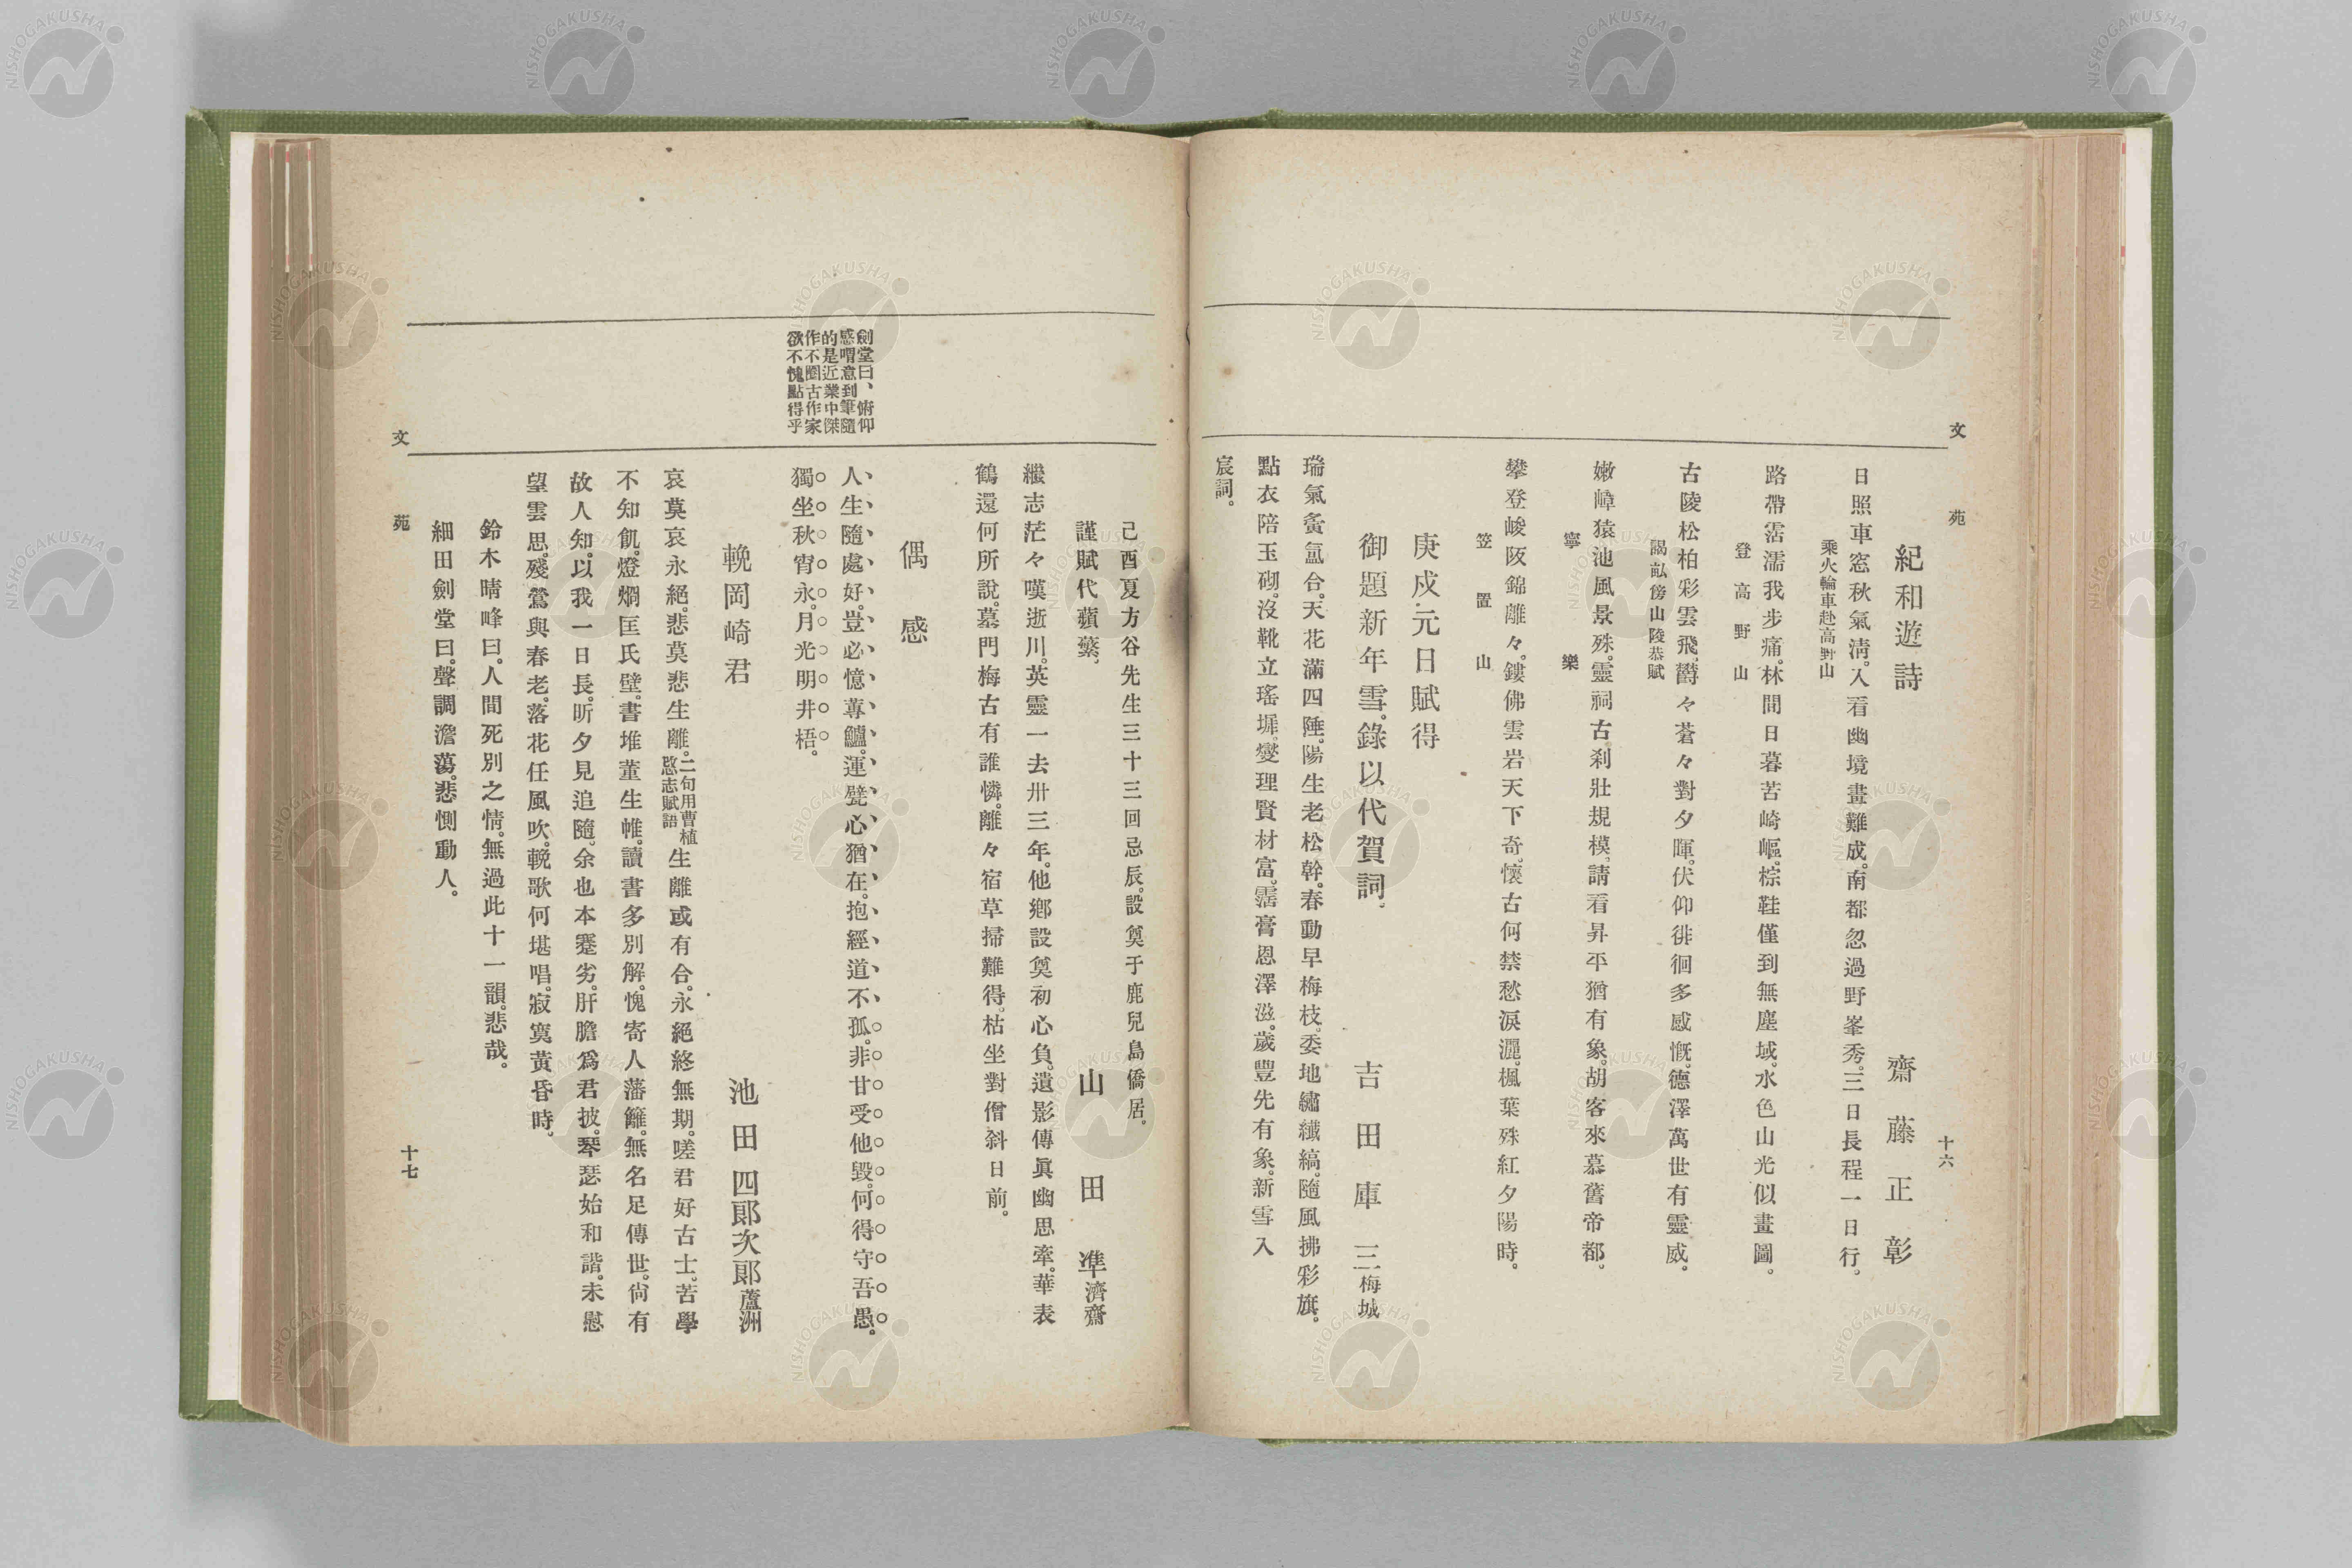 文苑
十六
紀和遊詩
齋藤正彰
日照車窓秋氣清。入看幽境畫難成。南都忽過野峯秀。三日長程一日行。
乘火輪車赴高野山
路帶霑濡我步痛。林間日暮苦崎嶇。棕鞋僅到無塵域。水色山光似畫圖。
登高野山
古陵松柏彩雲飛。欝々蒼々對夕暉。伏仰徘徊多感慨。德澤萬世有靈威。
謁畝傍山陵恭賦
嫩嶂猿池風景殊。靈祠古刹壯規模。請看昇平猶有象。胡客來慕舊帝都。
寧樂
攀登峻阪錦離々。鏤佛雲岩天下奇。懷古何禁愁淚灑。楓葉殊紅夕陽時。
笠置山
庚戍元日賦得
御題新年雪。錄以代賀詞。
吉田庫三梅城
瑞氣夤氳台。天花滿四陲。陽生老松幹。春動早梅枝。委地繡纖縞。隨風拂彩旗。
點衣陪玉砌。沒靴立瑤墀。燮理賢材富。霑膏恩澤滋。歲豐先有象。新雪入
宸詞。
己酉夏方谷先生三十三回忌辰。設奠于鹿兒島僑居。
謹賦代蘋蘩。
山田準濟齋
繼志茫々嘆逝川。英靈一去卅三年。他鄕設奠初心負。遺影傳眞幽思牽。華表
鶴還何所說。墓門梅古有誰憐。離々宿草掃難得。枯坐對僧斜日前。
偶感
劍堂曰、俯仰
感喟意到筆隨
的是近業中傑
作不圈古作家
欲不愧點得乎
人生隨處好。豈必憶蓴鱸。運甓心猶在。抱經道不孤。非甘受他毀。何得守吾愚。
獨坐秋宵永。月光明井梧。
輓岡崎君
池田四郞次郞蘆洲
哀莫哀永絕。悲莫悲生離。二句用曹植愍志賦語生離或有合。永絕終無期。嗟君好古士。苦學
不知飢。燈燗匡氏壁。書堆董生帷。讀書多別解。愧寄人藩籬。無名足傳世。尙有
故人知。以我一日長。昕夕見追隨。余也本蹇劣。肝膽爲君披。琴瑟始和諧。未慰
望雲思。殘鶯與春老。落花任風吹。輓歌何堪唱。寂寞黃昏時。
鈴木晴峰曰。人間死別之情。無過此十一韻。悲哉。
細田劍堂曰。聲調澹蕩。悲惻動人。
文苑
十七